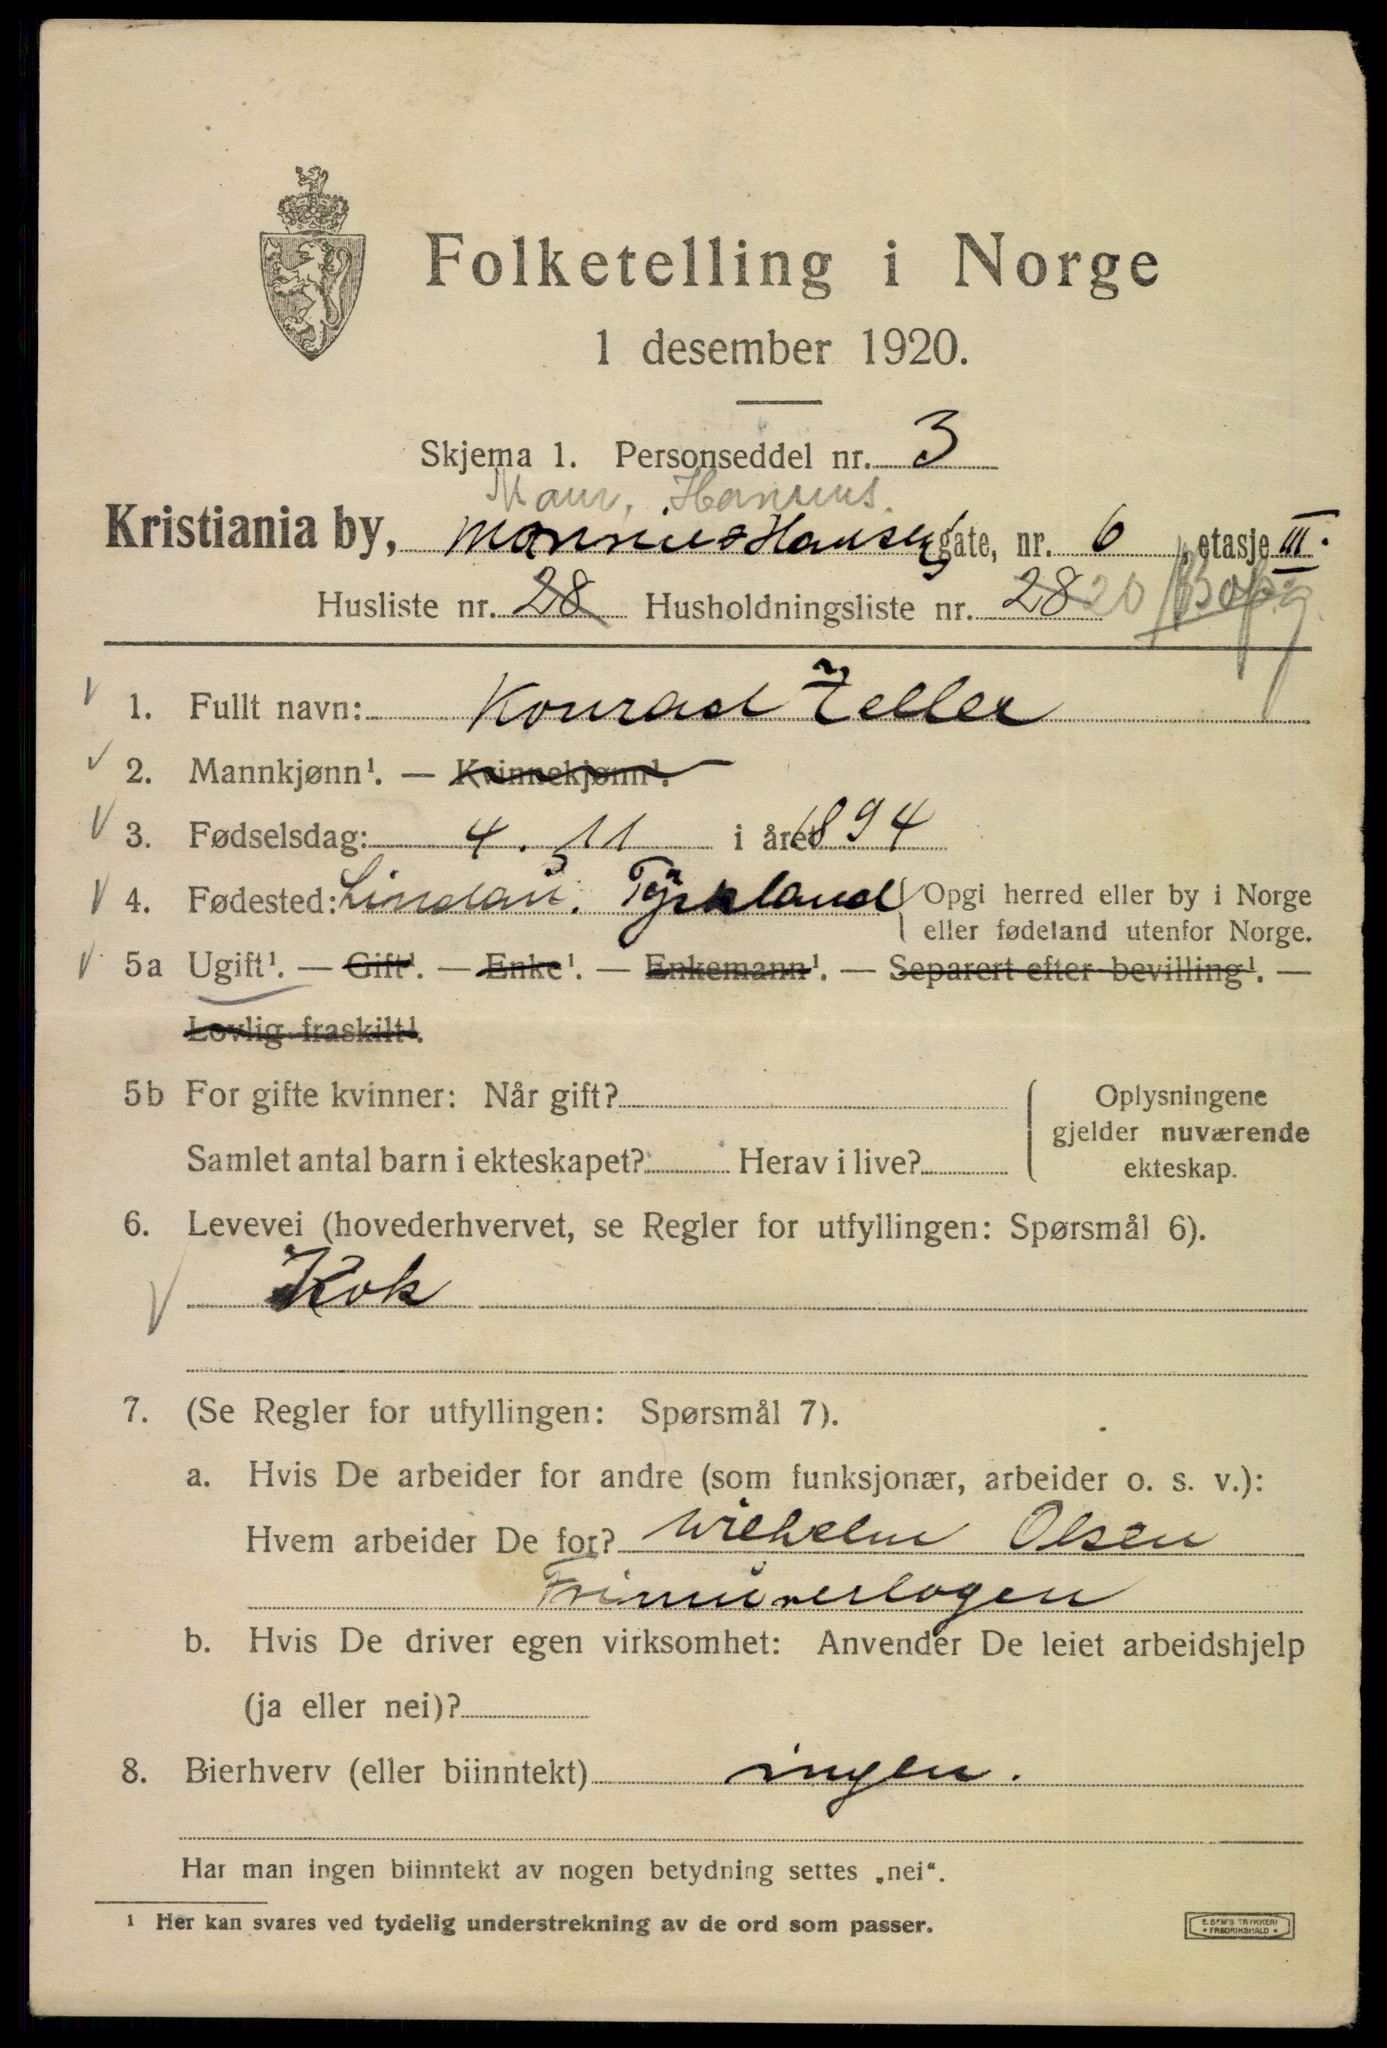 Folketelling i Norge
1 desember 1920.
Skjema 1. Personseddel nr. 3
Maur. Hansens.
Kristiania by, Hansens gate, nr. 6, etasje III.
Husliste nr. 28 Husholdningsliste nr. 28 20
1. Fullt navn: Konrad Zeller
2. Mannkjønn¹. — Kvinnekjønn¹.
3. Fødselsdag: 4. 11 i året 1894
4. Fødested: Lindau. Tyskland Opgi herred eller by i Norge
eller fødeland utenfor Norge.
5a Ugift¹. — Gift¹. — Enke¹. — Enkemann¹. — Separert efter bevilling¹. —
Lovlig fraskilt¹.
5b For gifte kvinner: Når gift? Oplysningene
gjelder nuværende
Samlet antal barn i ekteskapet? Herav i live? ekteskap.
6. Levevei (hovederhvervet, se Regler for utfyllingen: Spørsmål 6).
Kok
7. (Se Regler for utfyllingen: Spørsmål 7).
a. Hvis De arbeider for andre (som funksjonær, arbeider o. s. v.):
Hvem arbeider De for? Wilhelm Olsen
Frimurerlogen
b. Hvis De driver egen virksomhet: Anvender De leiet arbeidshjelp
(ja eller nei)?
8. Bierhverv (eller biinntekt) ingen.
Har man ingen biinntekt av nogen betydning settes „nei“.
¹ Her kan svares ved tydelig understrekning av de ord som passer.
E. SEM'S TRYKKERI
* FREDRIKSHALD *